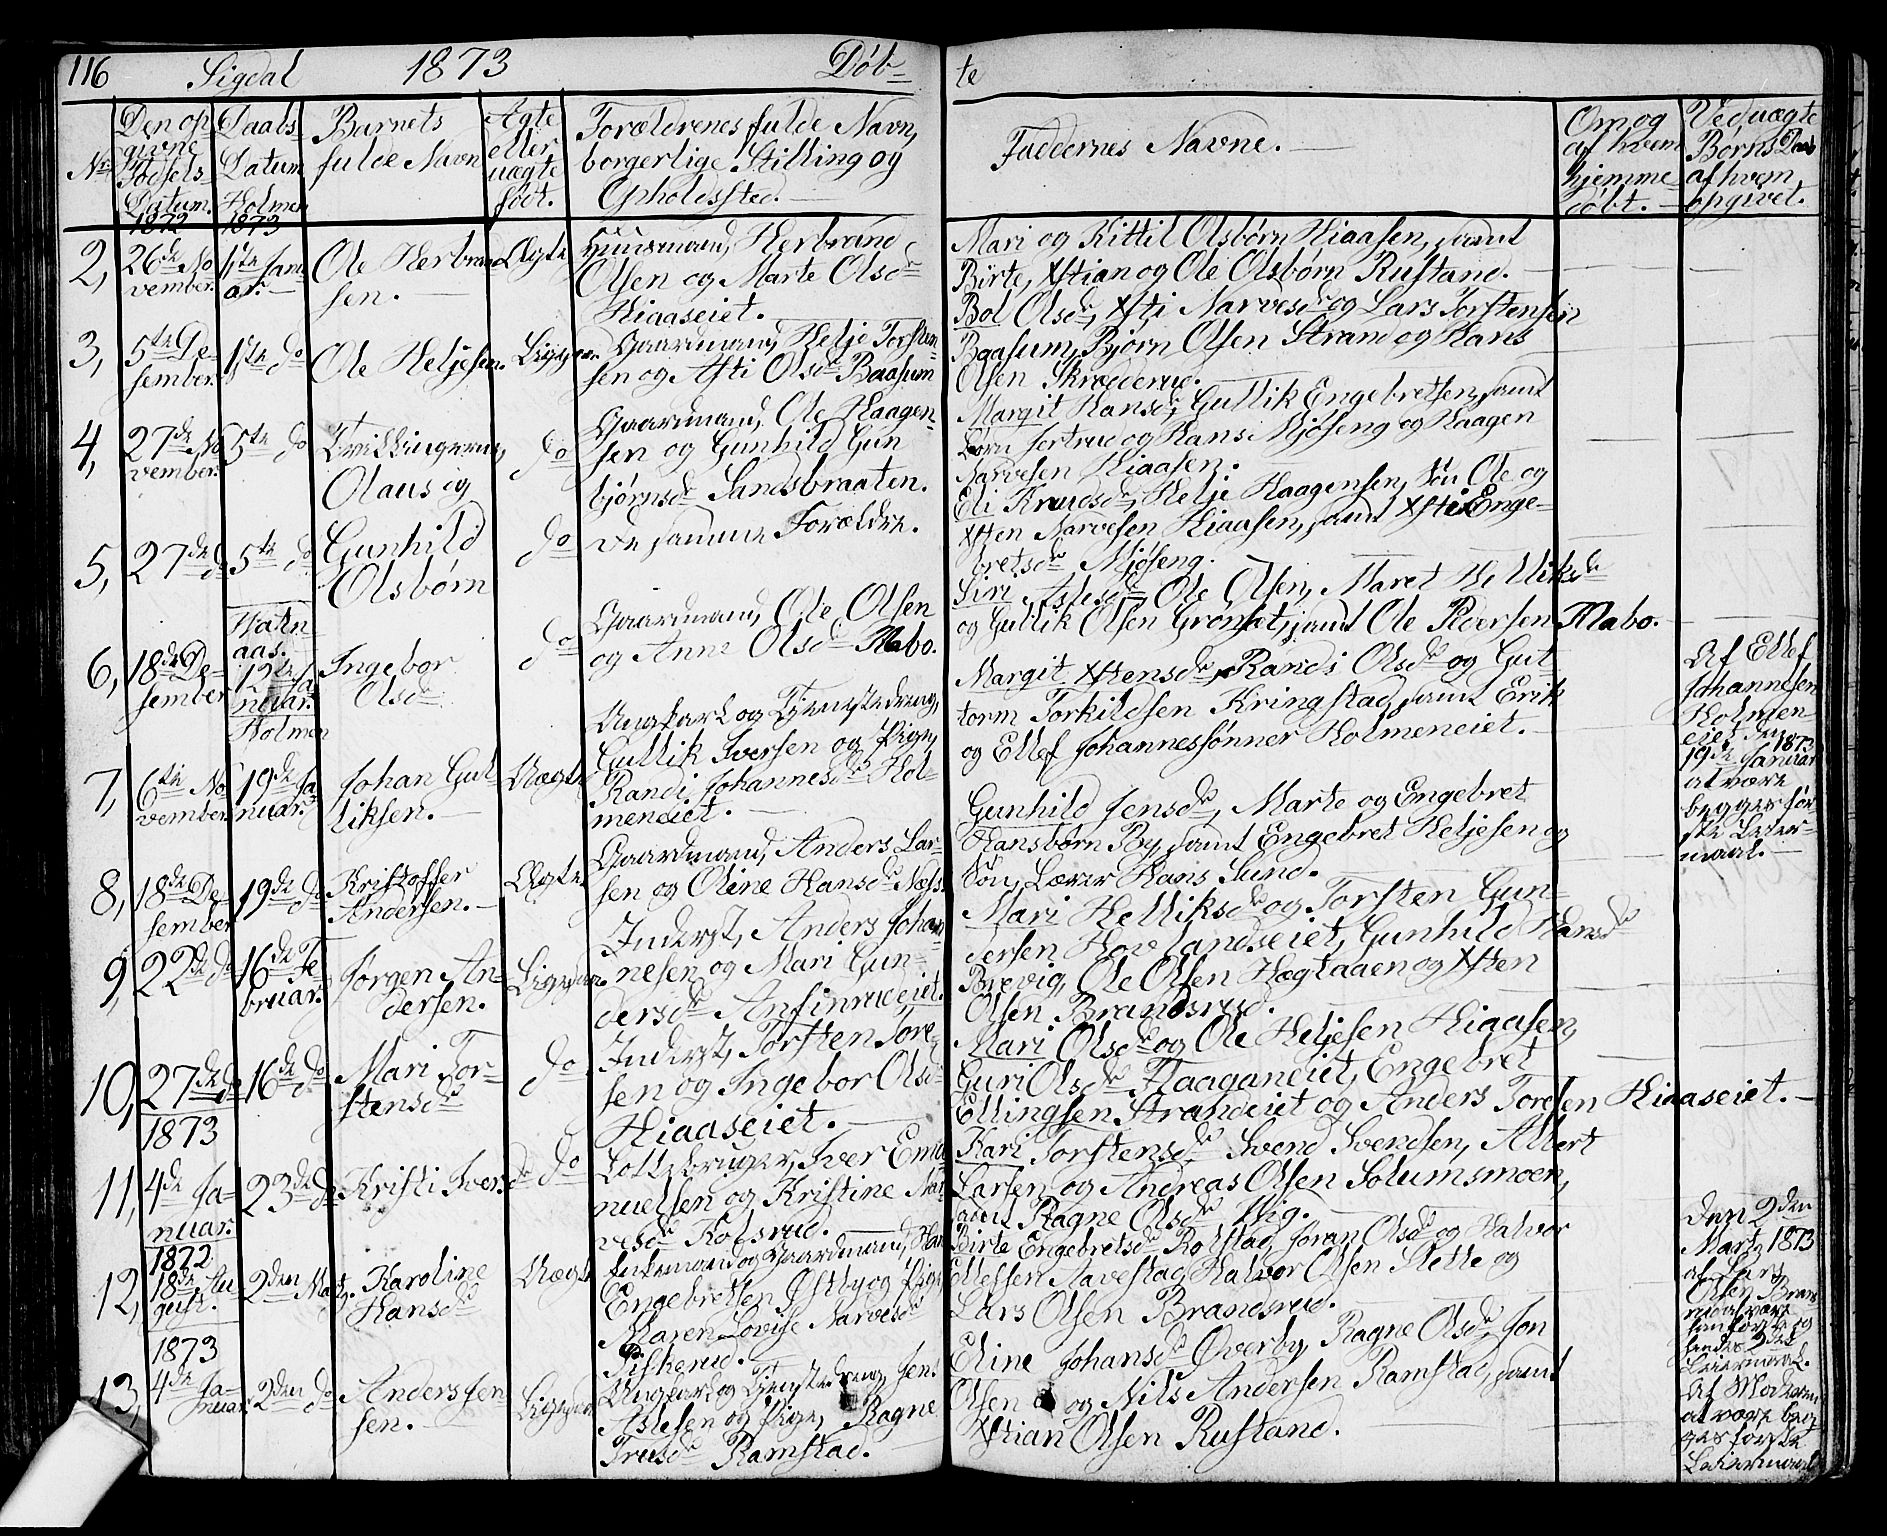 116 Sigdal 1873 Døb-
te
No
Den op
givne
Fødsels-
Datum.
1872
Daabs-
Datum
Holmen
1873
Barnets
fulde Navn
Ægte
eller
uægte
født.
Forældrenes fulde Navn,
borgerlige Stilling og
Opholdssted.
Faddernes Navne.
Om og
af hvem
hjemme-
døbt.
Ved uægte
Børns Daab
af hvem
opgivet.
2, 26de No
vember.
1ste Janu
ar.
Ole Herbrand
sen.
Ægte
Huusmand, Herbrand
Olsen og Marte Olsdr
Kiaaseiet.
Mari og Kittil Olsbørn Kiaasen, samt
Birte, Xstian og Ole Olsbørn Rustand.
3, 5te De-
sember.
1ste do
Ole Heljesen.
Ligesaa.
Gaardmand, Helje Torsten-
sen og Asti Olsdr Baasum
Bol Olsdr, Xsti Narvesdr og Lars Torstensen
Baasum, Bjørn Olsen Strand og Hans
Olsen Skrædderud.
4, 27de No
vember.
5te do
Tvillingerne,
Olaus og
do
Gaardmand, Ole Haagen-
sen og Gunhild Gun
bjørnsdr Sandsbraaten.
Margit Hansdr, Gullik Engebretsen, samt
Børn Jertrud og Hans Mjøseng og Haagen
Narvesen Kiaasen.
5, 27de do
5te do
Gunhild
Olsbørn
do
De samme Forældre.
Eli Knudsdr, Helje Haagensen, Søn Ole og
Xsten Narvesen Kiaasen, samt Xsti Enge-
bretsdr Mjøseng.
6, 18de De-
sember
Hatn-
aas.
12te Ja
nuar.
Ingebor
Olsdr
do
Gaardmand, Ole Olsen
og Anne Olsdr Mabo.
Siri Aslesdr Ole Olsen, Maret Helliksdr
og Gullik Olsen Grønset, samt Ole Pedersen Mabo.
7, 6te No
vember.
Holmen
19de Ja
nuar.
Johan Gul-
liksen.
Uægte
Ungkarl og Tjenestedreng,
Gullik Iversen og Pige,
Randi Johannesdr Hol-
meneiet.
Margit Xstensdr, Randi Olsdr og Gut
torm Torkildsen Kringstad, samt Erik
og Ellef Johannessønner Holmeneiet.
Af Ellef
Johannesen
Holmen-
eiet den
19de Januar 1873
at være
begges før-
ste Leier-
maal.
8, 18de De-
sember
19de do
Kristoffer
Andersen.
Ægte
Gaardmand, Anders Lar-
sen og Oline Hansdr Næss.
Gunhild Jensdr, Marte og Engebret
Hansbørn By, samt Engebret Heljesen og
Søn, Lærer Hans Lund.
9, 22de do
16de Fe
bruar.
Jørgen An-
dersen.
Ligesaa.
Inderst, Anders Johan-
nesen og Mari Gun-
dersdr Anfinrudeiet.
Mari Helliksdr og Torsten Gun-
dersen Hovlandseiet, Gunhild Hansdr
Brevig, Ole Olsen Hagtaaen og Xsten
Olsen Brandsrud.
10, 27de do
16de do
Mari Tor-
stensdr
do
Inderst, Torsten Tore
sen og Ingebor Olsdr
Kiaaseiet.
Mari Olsdr og Ole Heljesen Kiaasen,
Guri Olsdr Haaganeiet, Engebret
Ellingsen Strandeiet og Anders Toresen Kiaaseiet.
1873
11, 4de Ja-
nuar.
23de do
Kristi Ivers-
dr
do
Lottebruger, Iver Ema
nuelsen og Kristine Nar
vesdr Kolsrud.
Kari Torstensdr Svend Svendsen, Albert
Larsen og Andreas Olsen Solumsmoen,
samt Ragne Olsdr Thg.
1872
12, 18de Au
gust.
2den Marts.
Karoline
Hansdr
Uægte
Enkemand og Gaardmand, Han
Engebretsen Østby og Pige,
Maren Lovise Narvesdr
Fiskerud.
Birte Engebretsdr Rolstad, Joran Olsdr og Halvor
Ellefsen Aavestad, Halvor Olsen Slette og
Lars Olsen Brandsrud.
Den 2den
Marts 1873
af Lars
Olsen Brans
rud at være
hans første og
hendes 2det
Leiermaal.
1873
13, 4de Ja-
nuar.
2den do
Anders Jen
sen.
Ligesaa.
Ungkarl og Tjenestedreng, Jens
Aslesen og Pige, Ragne
Truesdr Ramstad.
Eline Johansdr Øverby, Ragne Olsdr, Jon
Olsen og Nils Andersen Ramstad, samt
Xstian Olsen Rustand.
Af Moderen
at være beg
ges første
Leiermaal